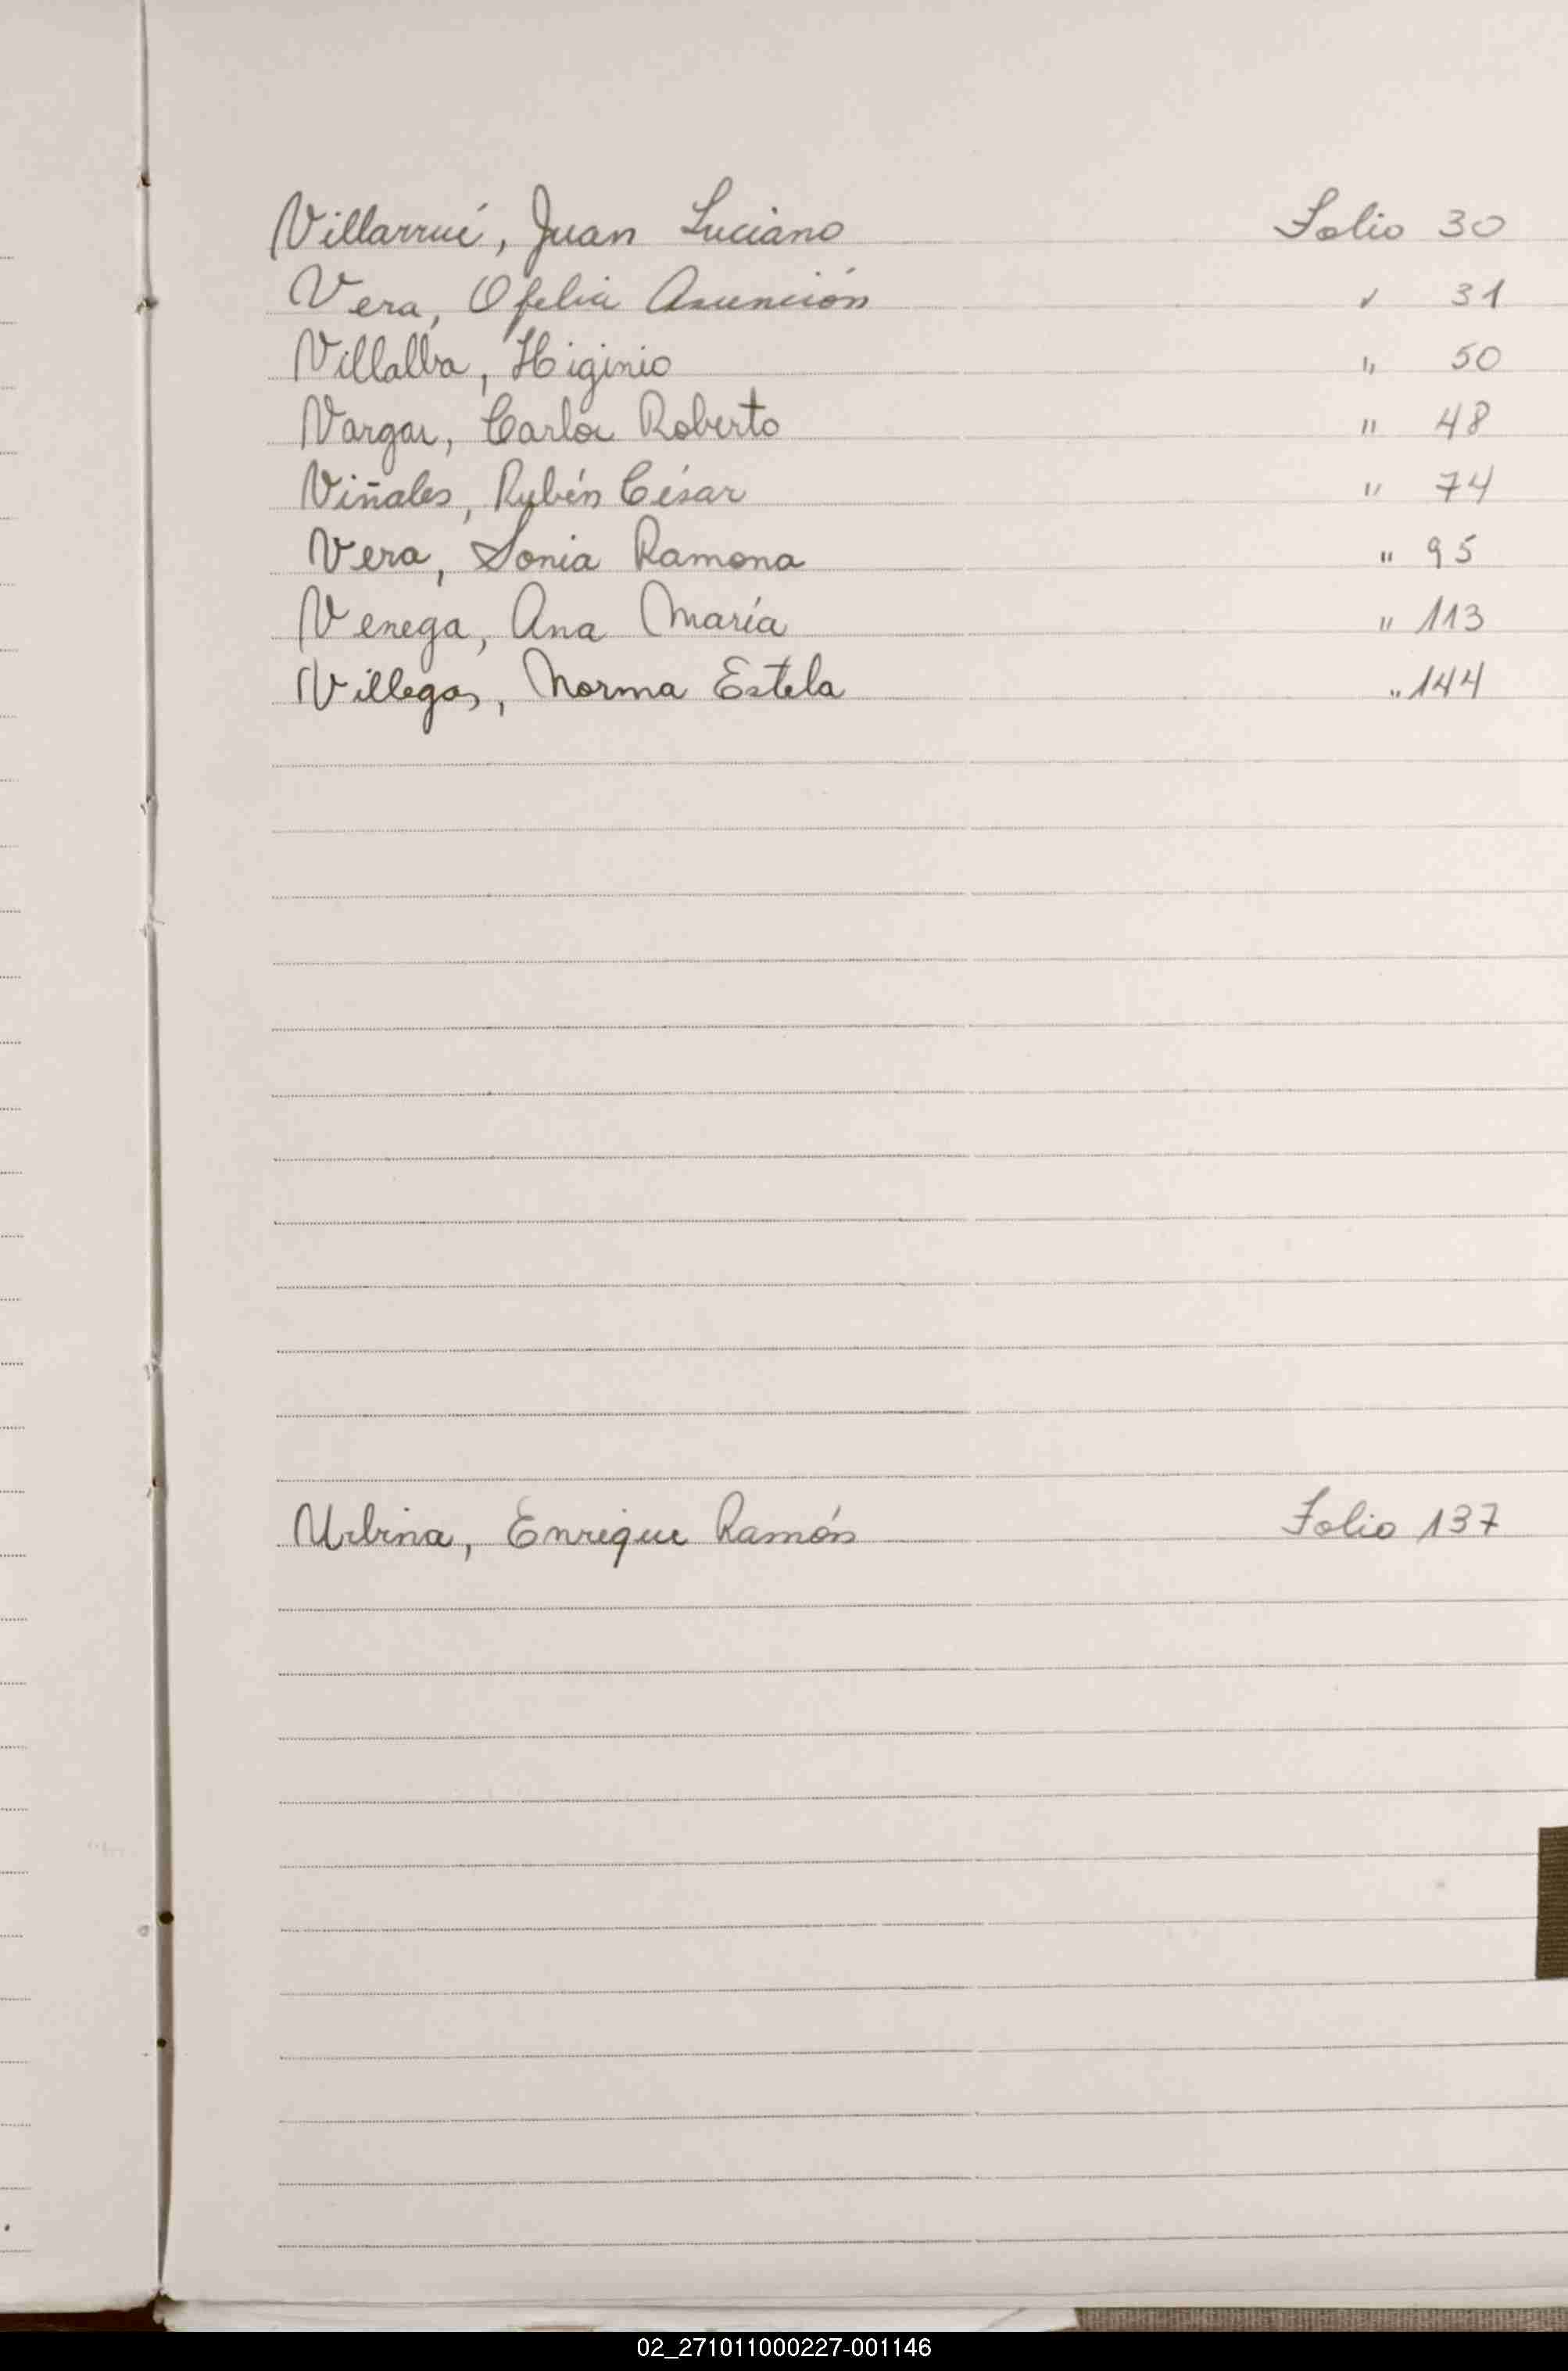 Villarrué, Juan Luciano Folio 30
Vera, Ofelia Asunción " 31
Villalba, Higinio " 50
Vargas, Carlos Roberto " 48
Viñales, Rubén César " 74
Vera, Sonia Ramona " 95
Venega, Ana María " 113
Villegas, Norma Estela " 144
Urbina, Enrique Ramón Folio 137
02_271011000227-001146